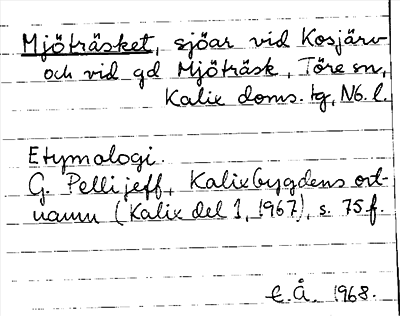 Mjöträsket, sjöar vid Kosjärv
och vid gd Mjöträsk, Töre sn,
Kalix doms. tg, Nb. l.
Etymologi.
G. Pellijeff, Kalixbygdens ort-
namn (Kalix del 1, 1967), s. 75 f.
E. Å. 1968.